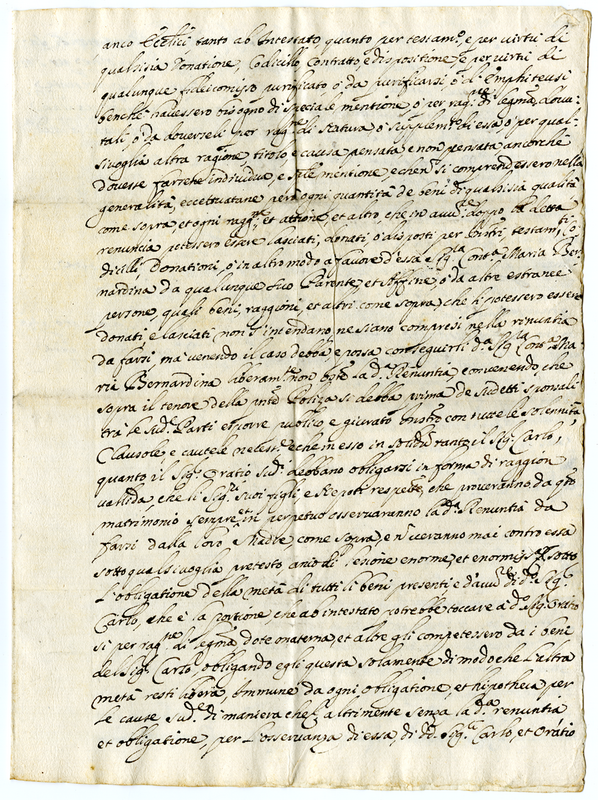 anco tanto ab Intestato, quanto per testam.º, e per virtù di
qualsisia Donatione, Codicillo Contratto, e dispositione e per virtù di
qualunque fideicomisso purificato ò da purificarsi, ò d'Emphiteusi
benche havessero bisogno di speciale mentione ò per rag.ne di legma, ò
tali, ò da doverseli per rag.ne di statura ò supplem.to di essa ò per qual-
sivoglia altra ragione, titolo e causa pensata e non pensata ancorche
dovesse farsene individua, e mentione, e che si comprendessero nella
generalità, eccettuatane però ogni quantità de beni di qualsisia qualità
come sopra et ogni et attione, et altro, che in doppo la detta
renuncia potessero essere lasciati, donati ò disposti per testam.ti Co-
dicilli, Donationi, ò in altro modo a favore d'essa Sig.ra Cont.a Maria Ber-
nardina da qualunque suo Parente, et Affine, ò da altre estranee
persone, quali beni, raggioni, et altri come sopra, che li potessero essere
donati e lasciati, non s'intendano, ne siano compresi nella rinuntia
da farsi, ma venendo il caso debba e possa conseguirli d.a Sig.ra Cont.a Ma-
ria Bernardina liberam.te non la d.a Renuntia, convenendo che
sopra il tenore della Poliza si debba prima de sudetti sponsali
trà le sud.e Parti et giurato con tutte le solennità,
Clausole, e cautele necess.e e che in esso in solidum tanto il Sig.r Carlo,
quanto il Sig.r Oratio sud.i debbano obligarsi in forma di raggion
valida che li Sig.ri suoi figli e Nepoti respett.e che proveranno da q.to
matrimonio sempre, et in perpetuo osservaranno la d.a Renuntia da
farsi dalla loro Madre, come sopra, e n verranno mai contro essa
sotto qualsivoglia pretesto anco di lesione enorme, et enormiss.a sotto
l'obligatione della metà di tutti li beni presenti e d'avv.re di d.o Sig.r
Carlo, che è la portione che ab intestato potrebbe toccare à d.o Sig. Oratio
si per rag.ne di legma, dote materna, et altre gli competessero da i beni
del Sig.r Carlo, obligando egli questa solamente di modo che l'altra
metà resti libera, Immune da ogni obligatione, et hipotheca per
le cause sud.e di maniera che altrimente senza la d.a renuntia
et obligatione, per l'osservanza di essa, di d.i Sig.ri Carlo, et Oratio